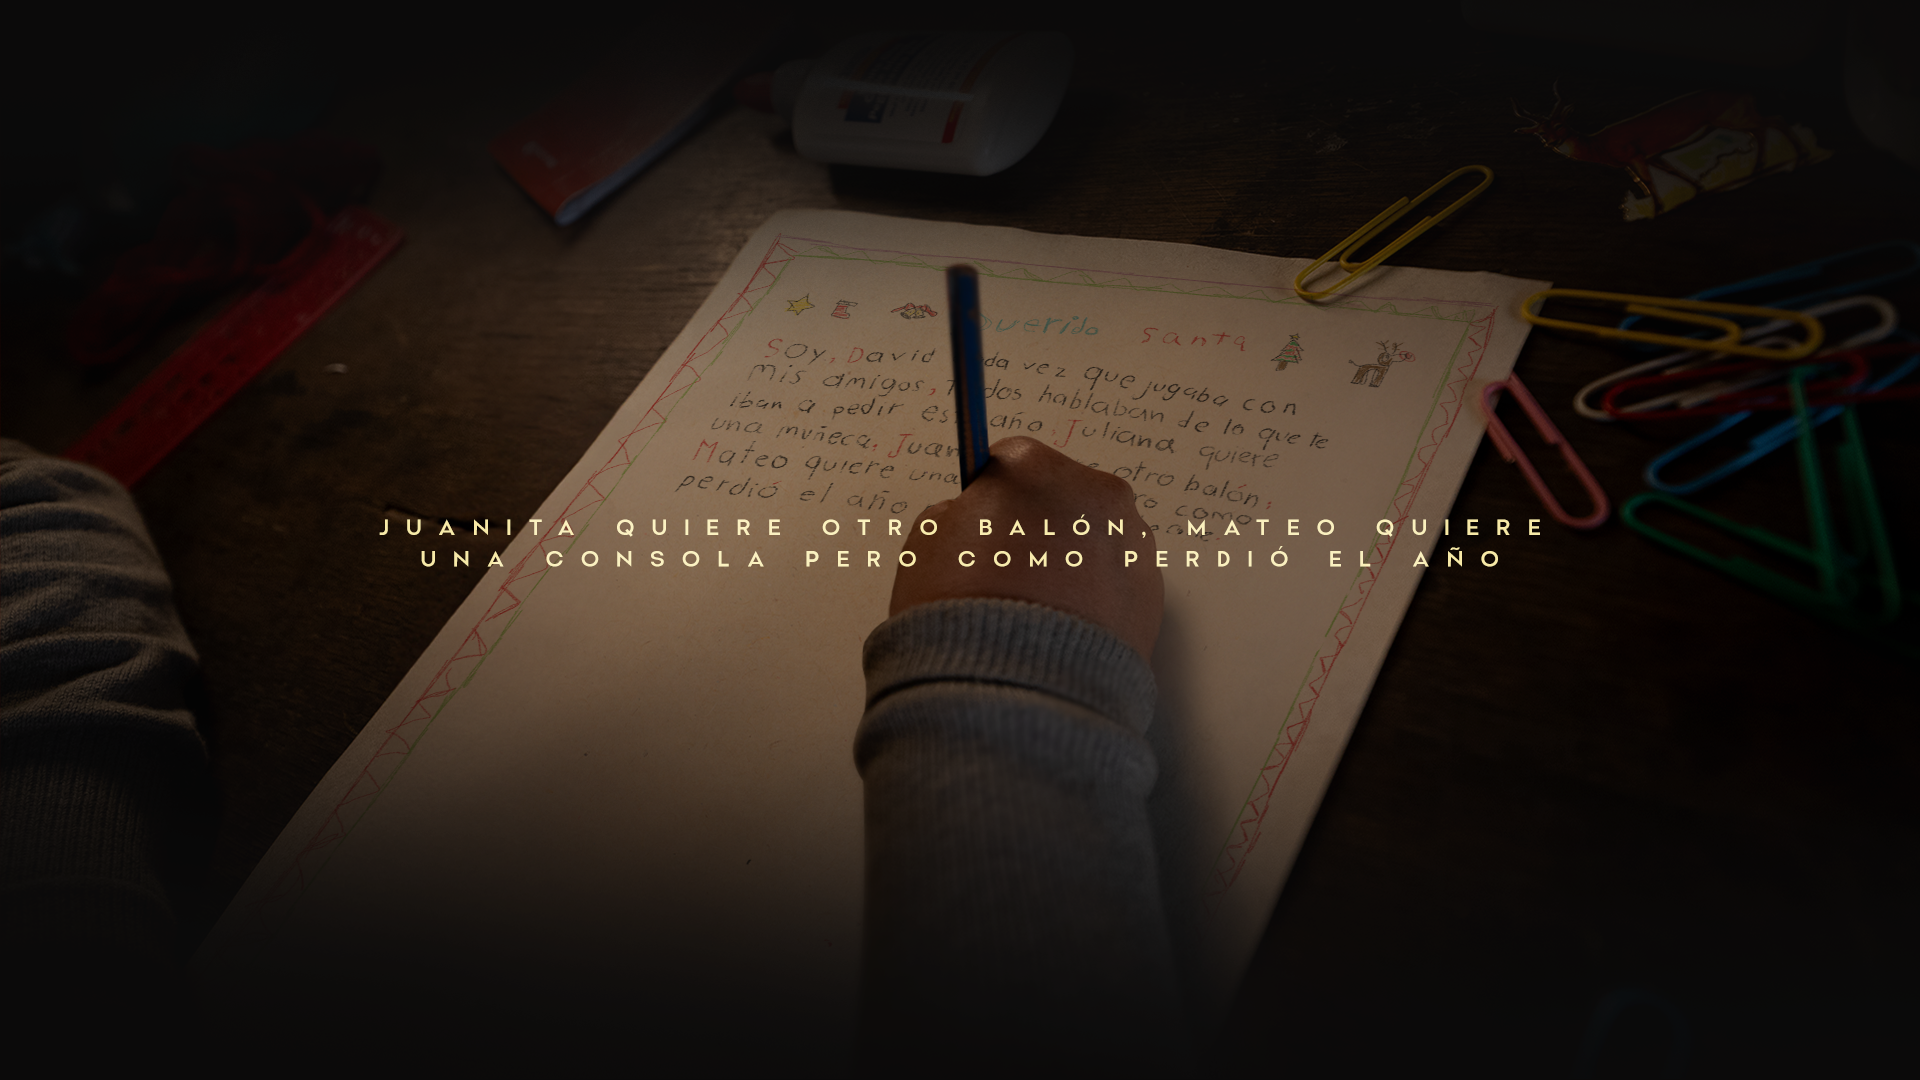 Querido Santa
Soy, David da vez que jugaba con
mis amigos, Todos hablaban de lo que te
iban a pedir este año, Juliana quiere
una muñeca, Juan e otro balón,
Mateo quiere una ro como
perdió el año
JUANITA QUIERE OTRO BALÓN, MATEO QUIERE
UNA CONSOLA PERO COMO PERDIÓ EL AÑO